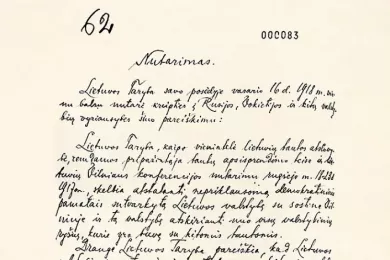 62
000083
Nutarimas.
Lietuvos Taryba savo posėdyje vasario 16 d. 1918 m. vie-
nu balsu nutarė kreiptis į Rusijos, Vokietijos ir kitų valsty-
bių vyriausybes šiuo pareiškimu:
Lietuvos Taryba, kaipo vienintelė lietuvių tautos atstovy-
bė, remdamos pripažintąja tautų apsisprendimo teise ir lie-
tuvių Vilniaus konferencijos nutarimu rugsėjo m. 18-23 d.
1917 m., skelbia atstatanti nepriklausomą demokratiniais
pamatais sutvarkytą Lietuvos valstybę su sostine Vil-
niuje ir tą valstybę atskirianti nuo visų valstybinių
ryšių, kurie yra buvę su kitomis tautomis.
Drauge Lietuvos Taryba pareiškia, kad Lietuvos